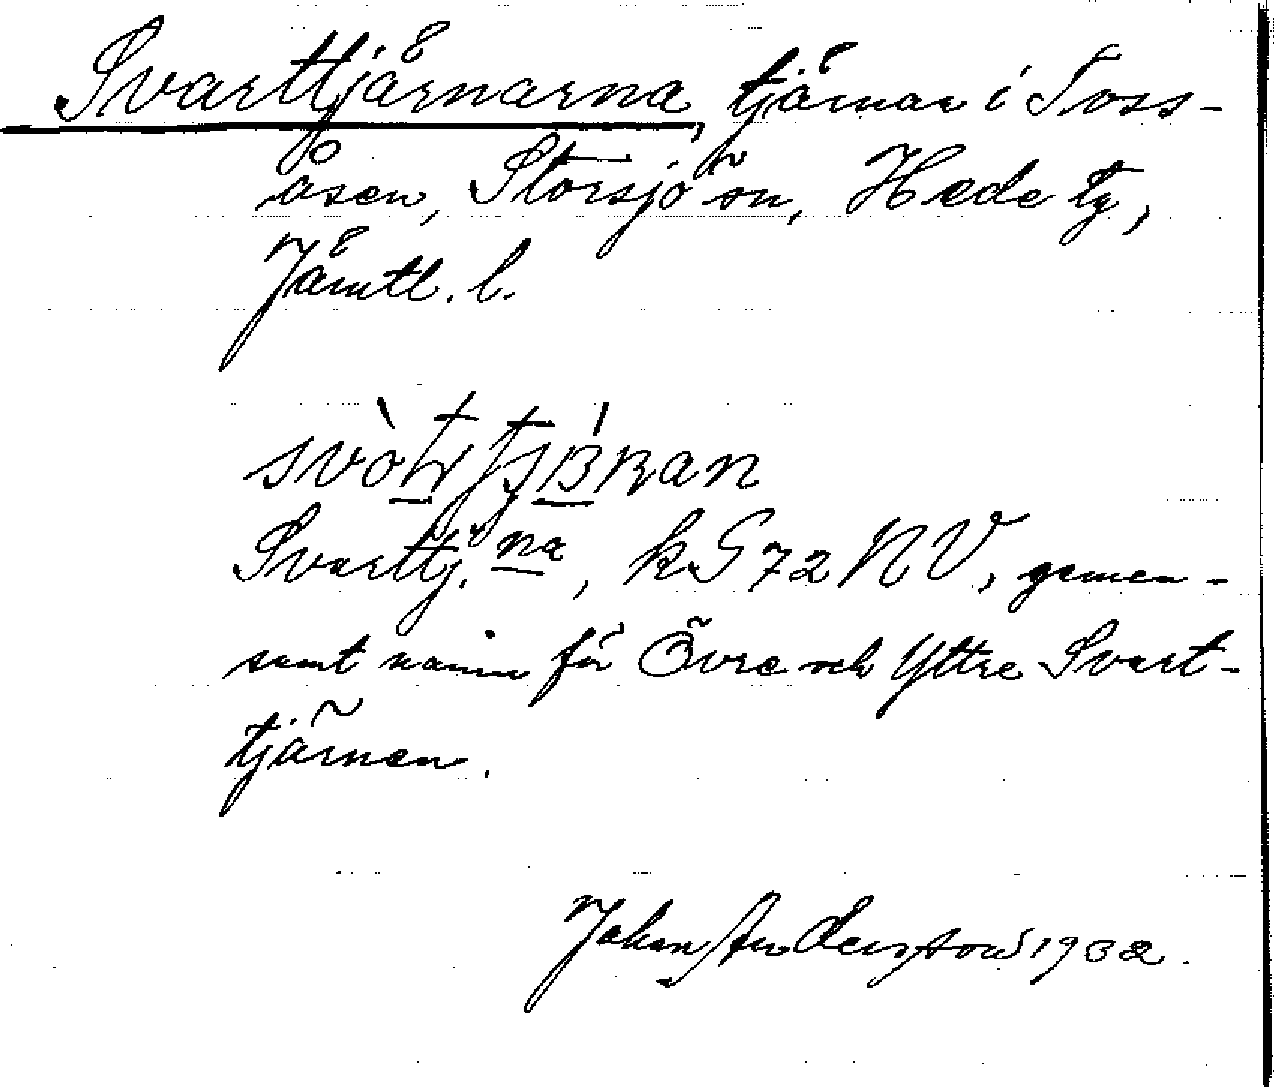 Svarttjärnarna, tjärnar i Toss-
åsen, Storsjö sn, Hede tg,
Jämtl. l.
Svarttj.na, kG72NV, gemen-
samt namn för Övre och Yttre Svart-
tjärnen.
Johan Andersson 1932.